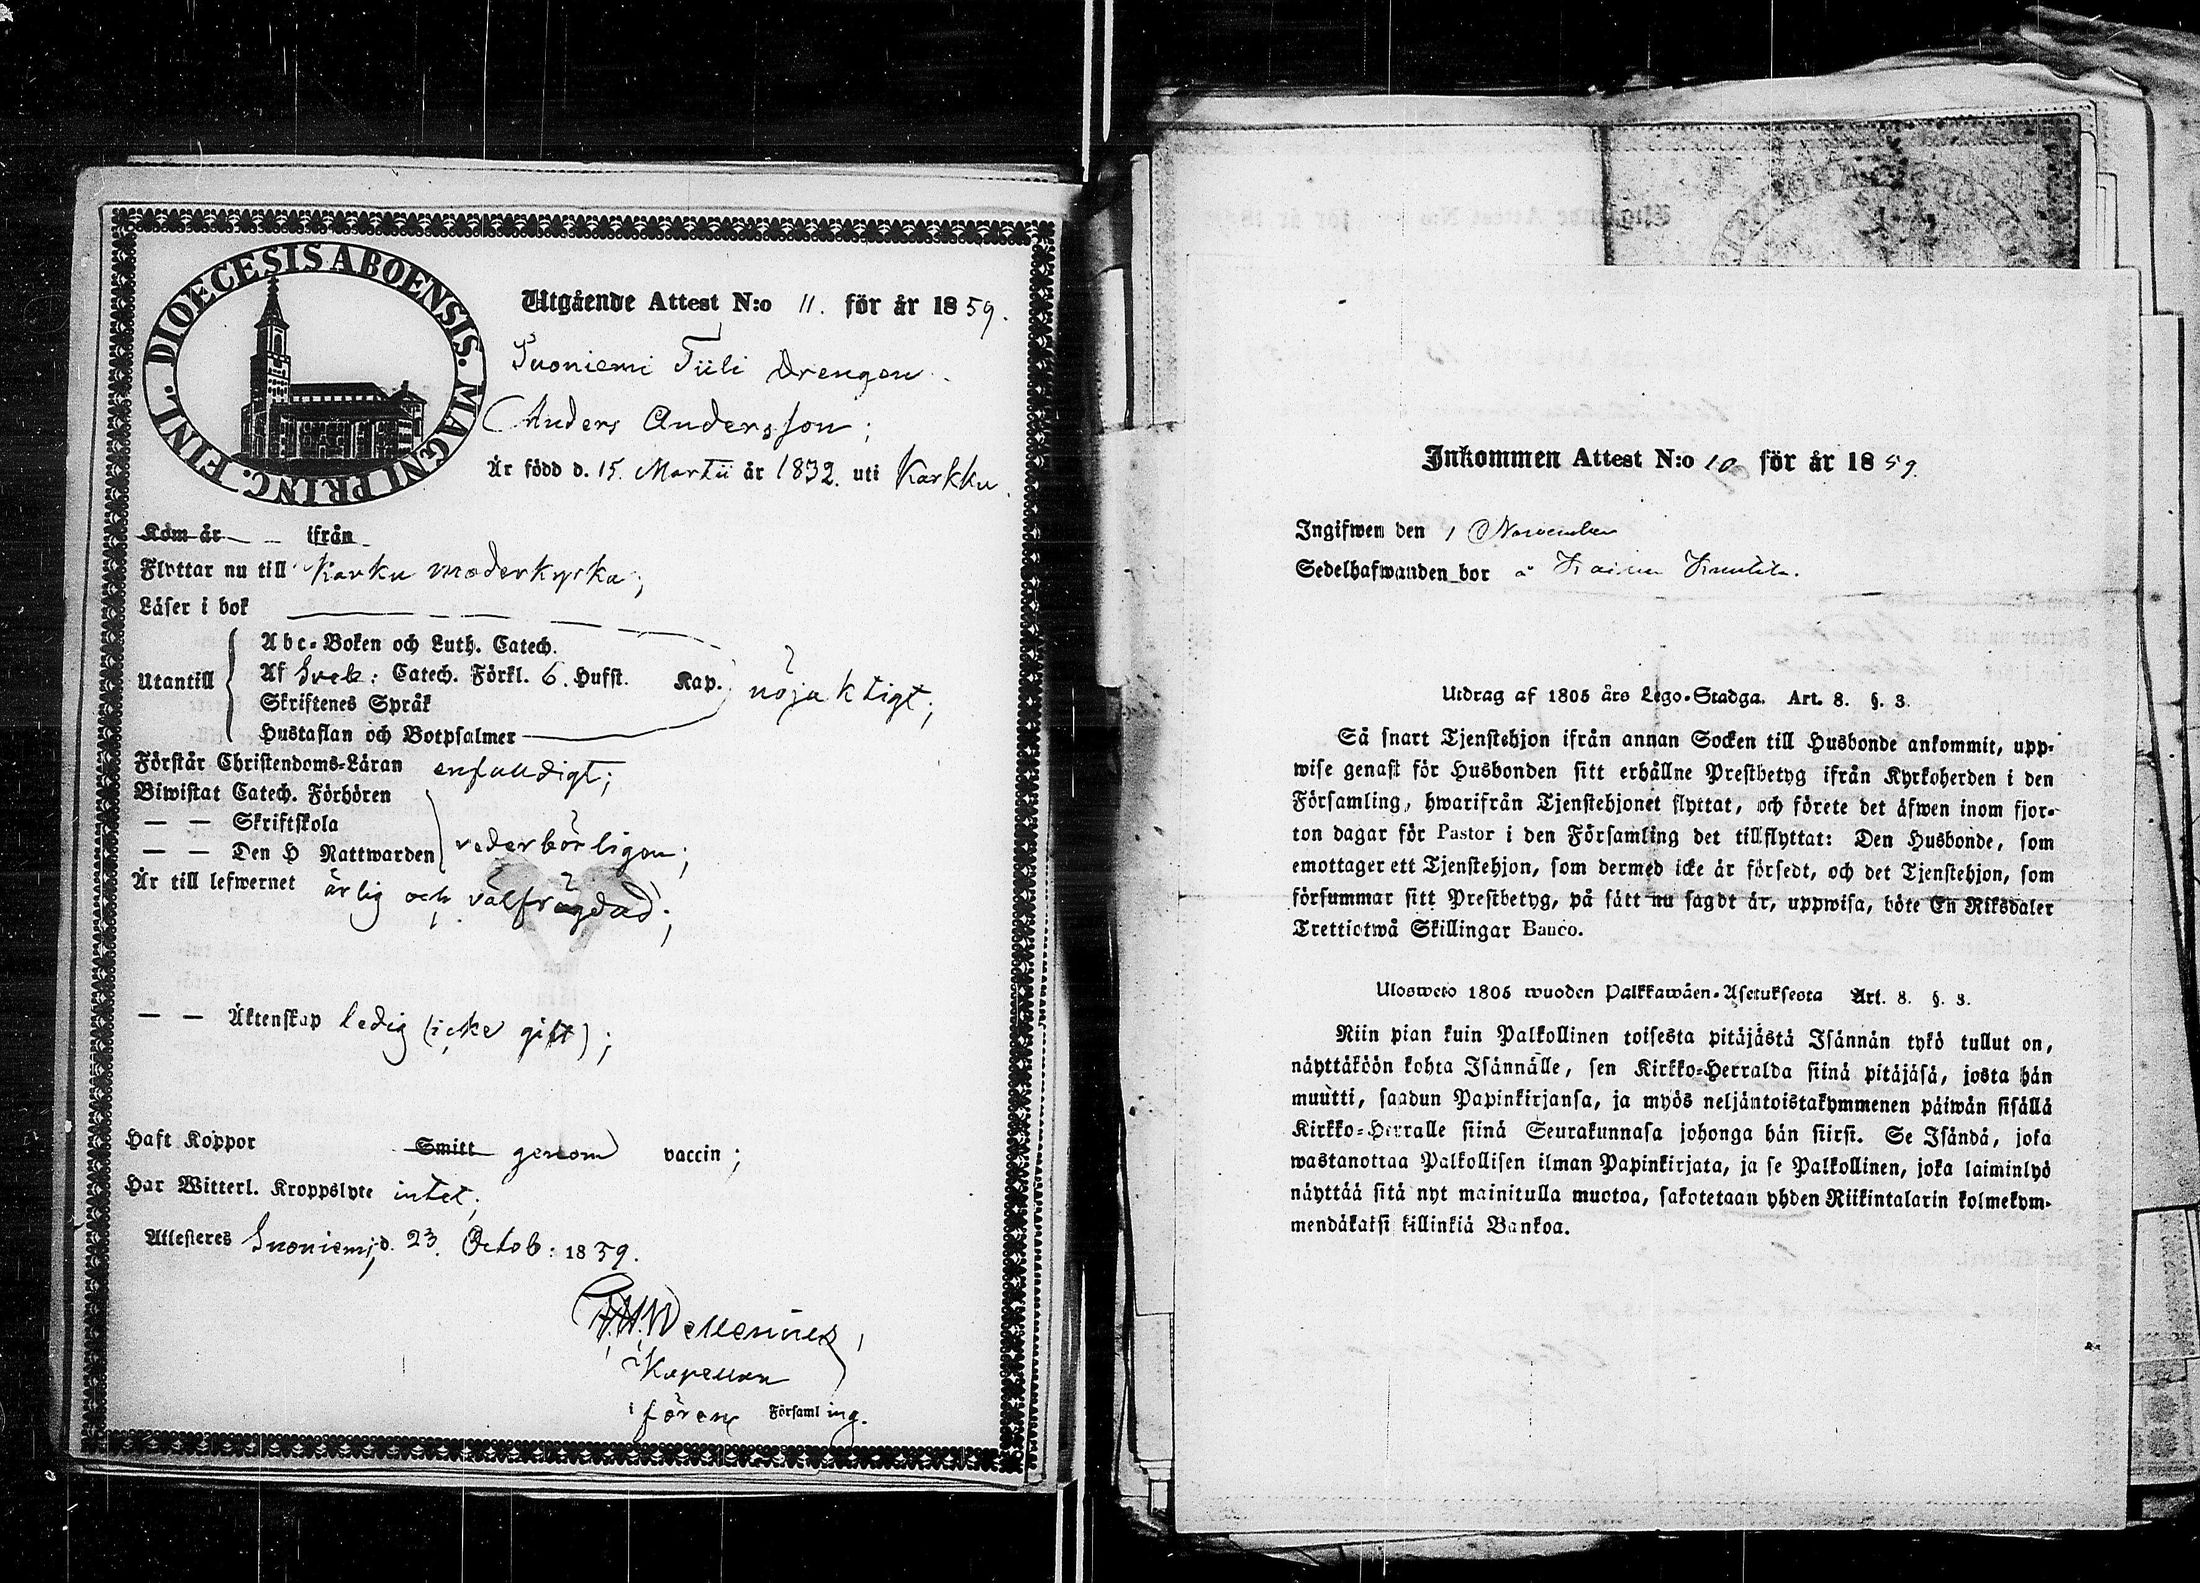 DIOECESIS ABOENSIS. MAGNI PRINC. FINL.
Utgående Attest N:o 11. för år 1859.
Suoniemi Tiili Drengen
Anders Andersson;
Är född d. 15. Martii år 1832. uti Karkku.
Kom år ifrån
Flyttar nu till Karku moderkyrka;
Läser i bok
Utantill
Abc-Boken och Luth. Catech.
Af Sveb: Catech. Förkl. 6. Hufst. Kap. nöjaktigt;
Skriftenes Språk
Hustaflan och Botpsalmer
Förstår Christendoms-Läran enfaldigt;
Biwistat Catech. Förhören
— — Skriftskola
— — Den H Nattwarden vederbörligen;
Är till lefwernet ärlig och välfrägdad;
— — Äktenskap ledig (icke gift);
Haft Koppor Smitt genom vaccin;
Har Witterl. Kroppslyte intet;
Attesteres Suoniemi, d. 23. Octob: 1859.
Kapellan
i föran Församling.
Inkommen Attest N:o 10 för år 1859.
Ingifwen den 1 November
Sedelhafwanden bor å
Utdrag af 1805 års Lego-Stadga. Art. 8. §. 3.
Så snart Tjenstehjon ifrån annan Socken till Husbonde ankommit, upp-
wise genast för Husbonden sitt erhållne Prestbetyg ifrån Kyrkoherden i den
Församling, hwarifrån Tjenstehjonet flyttat, och förete det äfwen inom fjor-
ton dagar för Pastor i den Församling det tillflyttat: Den Husbonde, som
emottager ett Tjenstehjon, som dermed icke är försedt, och det Tjenstehjon, som
försummar sitt Prestbetyg, på sätt nu sagdt är, uppwisa, böte En Riksdaler
Trettiotwå Skillingar Banco.
Ulosweto 1805 wuoden Palkkawäen-Asetuksesta Art. 8. §. 3.
Niin pian kuin Palkollinen toisesta pitäjästä Isännän tykö tullut on,
näyttäköön kohta Isännälle, sen Kirkko-Herralda siinä pitäjäsä, josta hän
muutti, saadun Papinkirjansa, ja myös neljäntoistakymmenen päiwän sisällä
Kirkko-Herralle siinä Seurakunnasa johonga hän siirsi. Se Isändä, joka
wastanottaa Palkollisen ilman Papinkirjata, ja se Palkollinen, joka laiminlyö
näyttää sitä nyt mainitulla muotoa, sakotetaan yhden Riikintalarin kolmekym-
mendäkaksi killinkiä Bankoa.